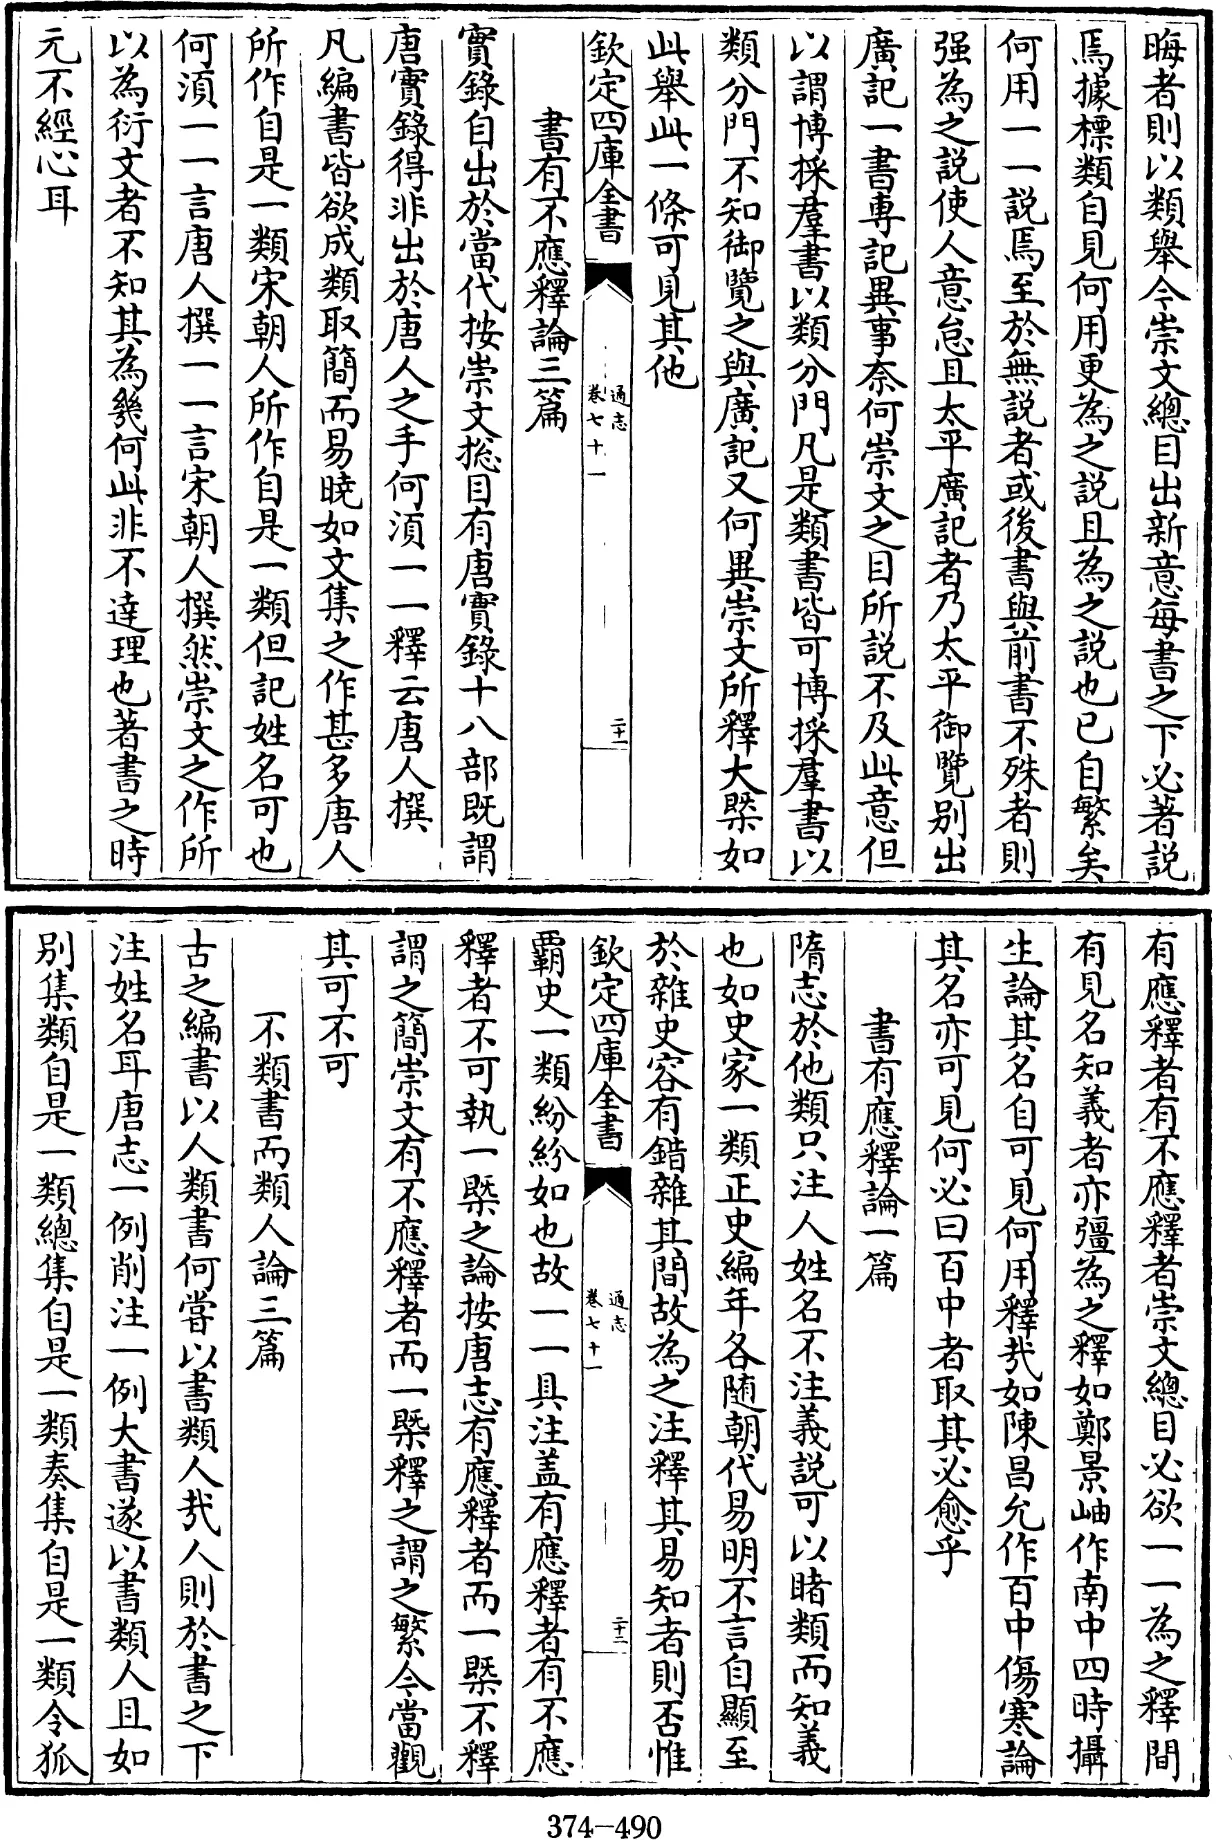 晦者則以類舉今崇文總目出新意每書之下必著說
焉據標類自見何用更為之說且為之說也已自繁矣
何用一一說焉至於無說者或後書與前書不殊者則
强為之說使人意怠且太平廣記者乃太平御覽别出
廣記一書專記異事奈何崇文之目所說不及此意但
以謂博採羣書以類分門凡是類書皆可博採羣書以
類分門不知御覽之與廣記又何異崇文所釋大槩如
此舉此一條可見其他
欽定四庫全書
通志
卷七十一
二十一
書有不應釋論三篇
實錄自出於當代按崇文總目有唐實錄十八部既謂
唐實錄得非出於唐人之手何須一一釋云唐人撰
凡編書皆欲成類取簡而易曉如文集之作甚多唐人
所作自是一類宋朝人所作自是一類但記姓名可也
何須一一言唐人撰一一言宋朝人撰然崇文之作所
以為衍文者不知其為幾何此非不達理也著書之時
元不經心耳
有應釋者有不應釋者崇文總目必欲一一為之釋間
有見名知義者亦彊為之釋如鄭景岫作南中四時攝
生論其名自可見何用釋哉如陳昌允作百中傷寒論
其名亦可見何必曰百中者取其必愈乎
書有應釋論一篇
隋志於他類只注人姓名不注義說可以睹類而知義
也如史家一類正史編年各随朝代易明不言自顯至
於雜史容有錯雜其間故為之注釋其易知者則否惟
欽定四庫全書
通志
卷七十一
二十二
霸史一類紛紛如也故一一具注盖有應釋者有不應
釋者不可執一槩之論按唐志有應釋者而一槩不釋
謂之簡崇文有不應釋者而一槩釋之謂之繁今當觀
其可不可
不類書而類人論三篇
古之編書以人類書何嘗以書類人哉人則於書之下
注姓名耳唐志一例削注一例大書遂以書類人且如
别集類自是一類總集自是一類奏集自是一類令狐
374-490